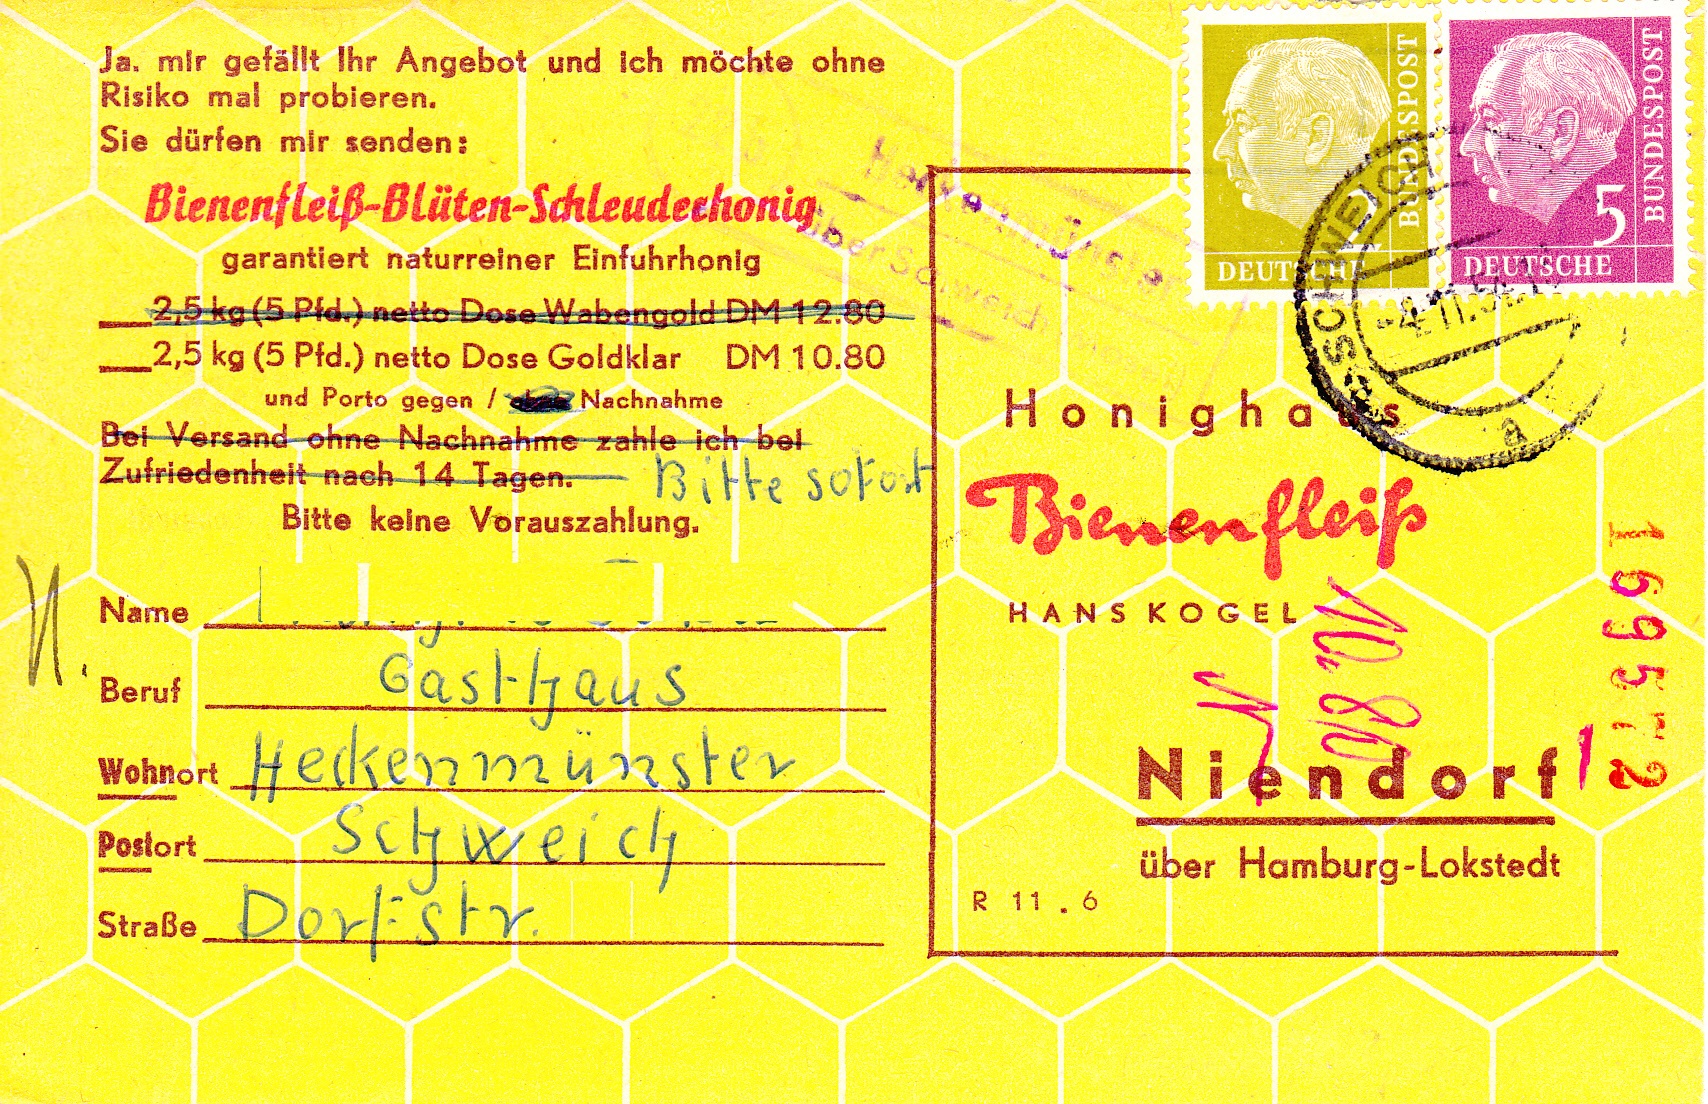 Ja, mir gefällt Ihr Angebot und ich möchte ohne
Risiko mal probieren.
Sie dürfen mir senden:
Bienenfleiß-Blüten-Schleuderhonig
garantiert naturreiner Einfuhrhonig
2,5 kg (5 Pfd.) netto Dose Wabengold DM 12.80
2,5 kg (5 Pfd.) netto Dose Goldklar DM 10.80
und Porto gegen / Nachnahme
Bei Versand ohne Nachnahme zahle ich bei
Zufriedenheit nach 14 Tagen.
Bitte sofort
Bitte keine Vorauszahlung.
Name
Beruf Gasthaus
Wohnort Heckenmünster
Postort Schweich
Straße Dorfstr.
2
DEUTSCHE
BUNDESPOST
5
DEUTSCHE
BUNDESPOST
SCHWEICH
a
Heckenmünster
über Schweich
Honighaus
Bienenfleiß
HANS KOGEL
10.80
Niendorf
über Hamburg-Lokstedt
R 11.6
169572